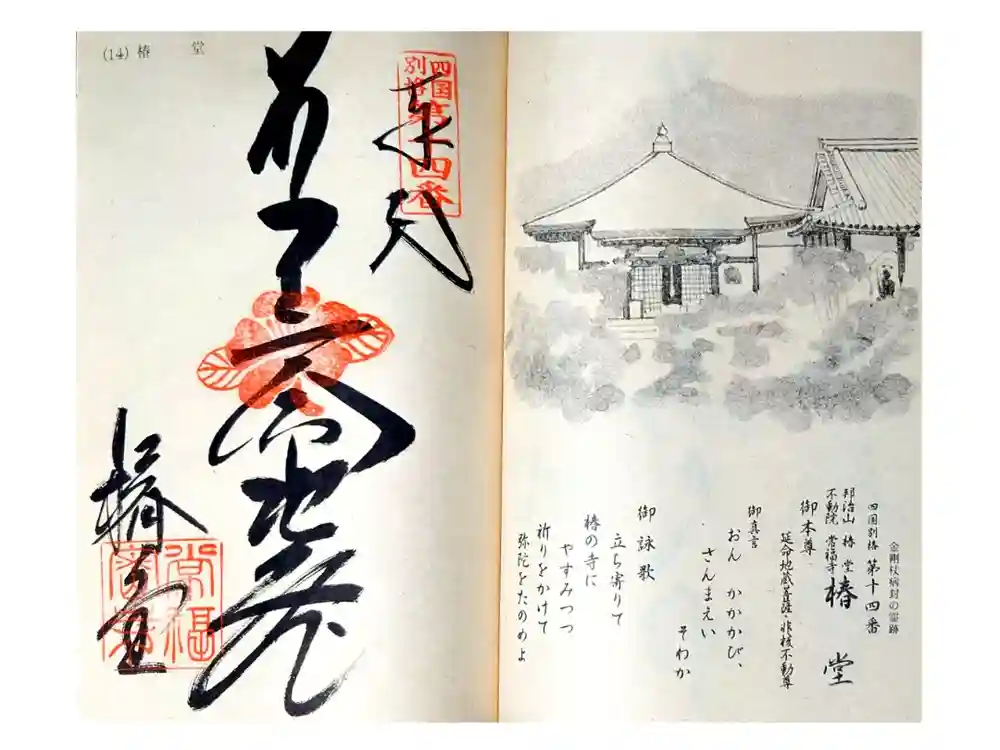 (14) 椿 堂
四国
別格
第十四番
椿堂
金剛杖病封の霊跡
四国別格 第十四番
邦治山 椿堂
不動院 常福寺 椿 堂
御本尊
延命地蔵菩薩・非核不動尊
御真言
おん かかかび、
さんまえい
そわか
御詠歌
立ち寄りて
椿の寺に
やすみつつ
祈りをかけて
弥陀をたのめよ